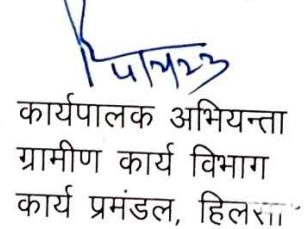 कार्यपालक अभियन्ता
ग्रामीण कार्य विभाग
कार्य प्रमंडल, हिलसा